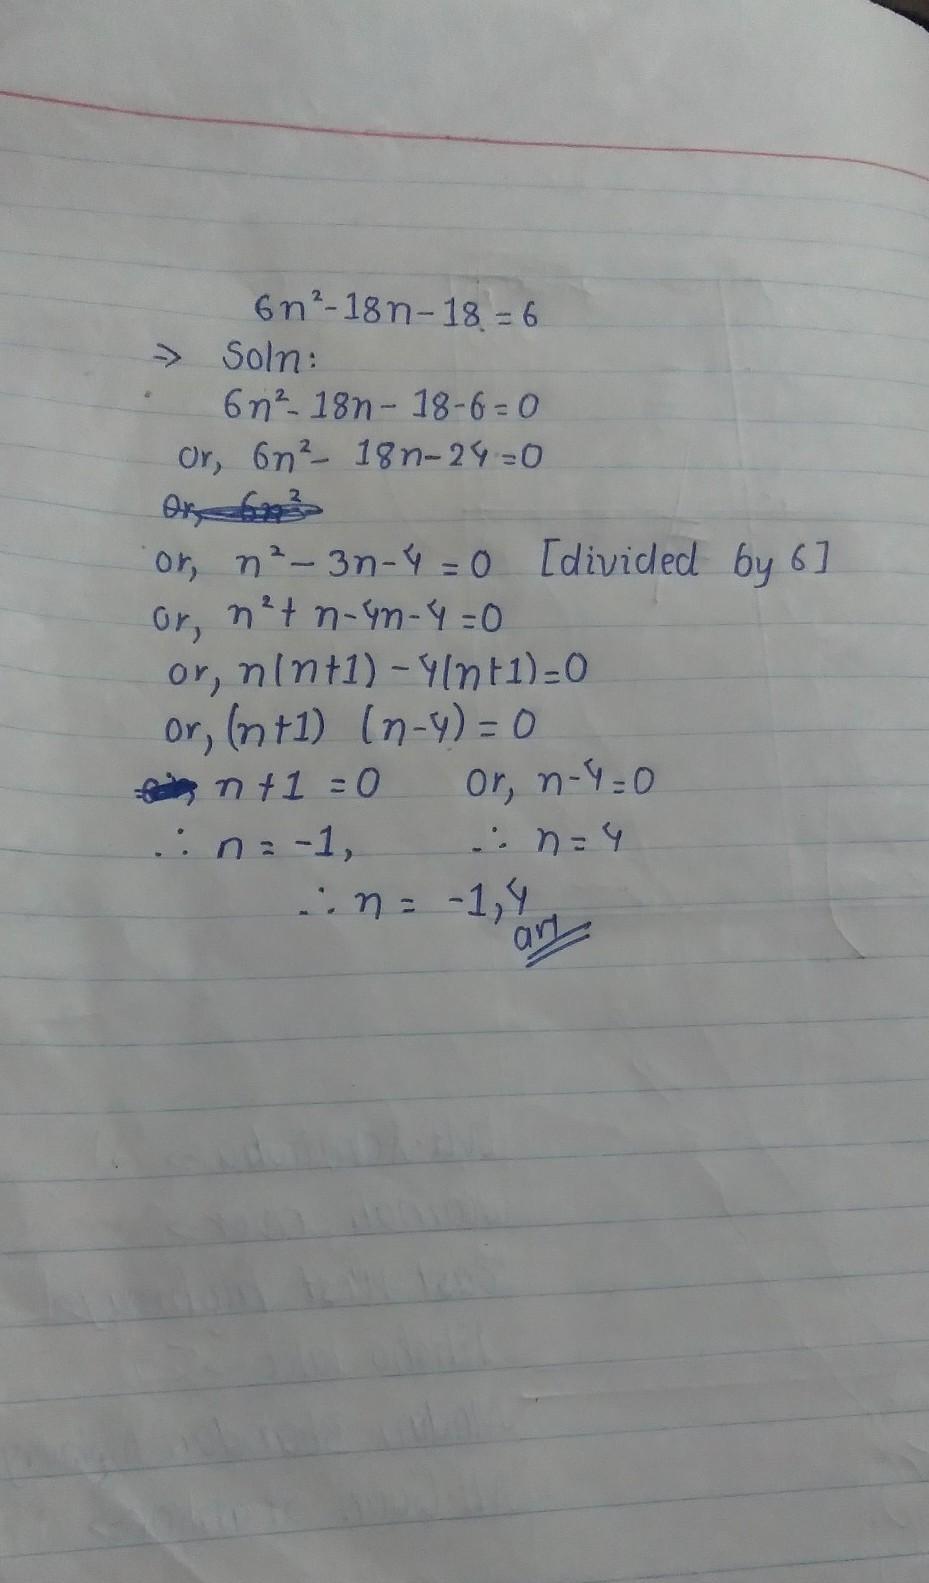 6n²-18n-18=6
⇒ Soln:
6n²-18n-18-6=0
or, 6n²-18n-24=0
or, 6n²
or, n²-3n-4=0 [divided by 6]
or, n²+n-4n-4=0
or, n(n+1)-4(n+1)=0
or, (n+1) (n-4)=0
n+1=0 or, n-4=0
∴ n=-1, ∴ n=4
∴ n= -1,4